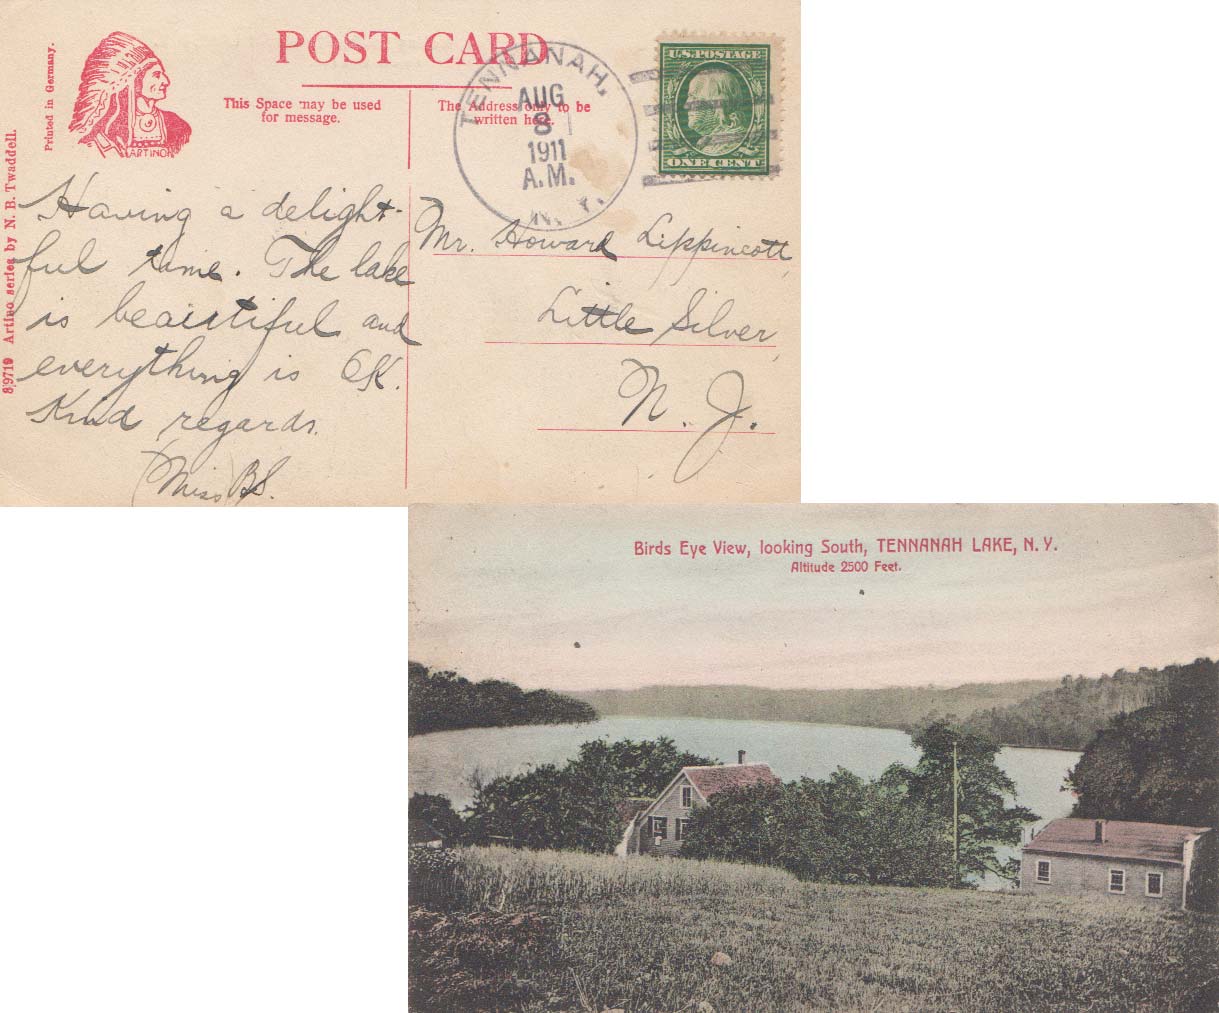 POST CARD
Printed in Germany.
ARTINO
This Space may be used
for message.
The Address only to be
written here.
TENNANAH,
AUG
8
1911
A.M.
N. Y.
U.S. POSTAGE
ONE CENT
89719 Artino series by N. B. Twaddell.
Having a delight-
ful time. The lake
is beautiful and
everything is OK.
Kind regards.
(Miss) B.S.
Mr. Howard Lippincott,
Little Silver,
N. J.
Birds Eye View, looking South, TENNANAH LAKE, N. Y.
Altitude 2500 Feet.